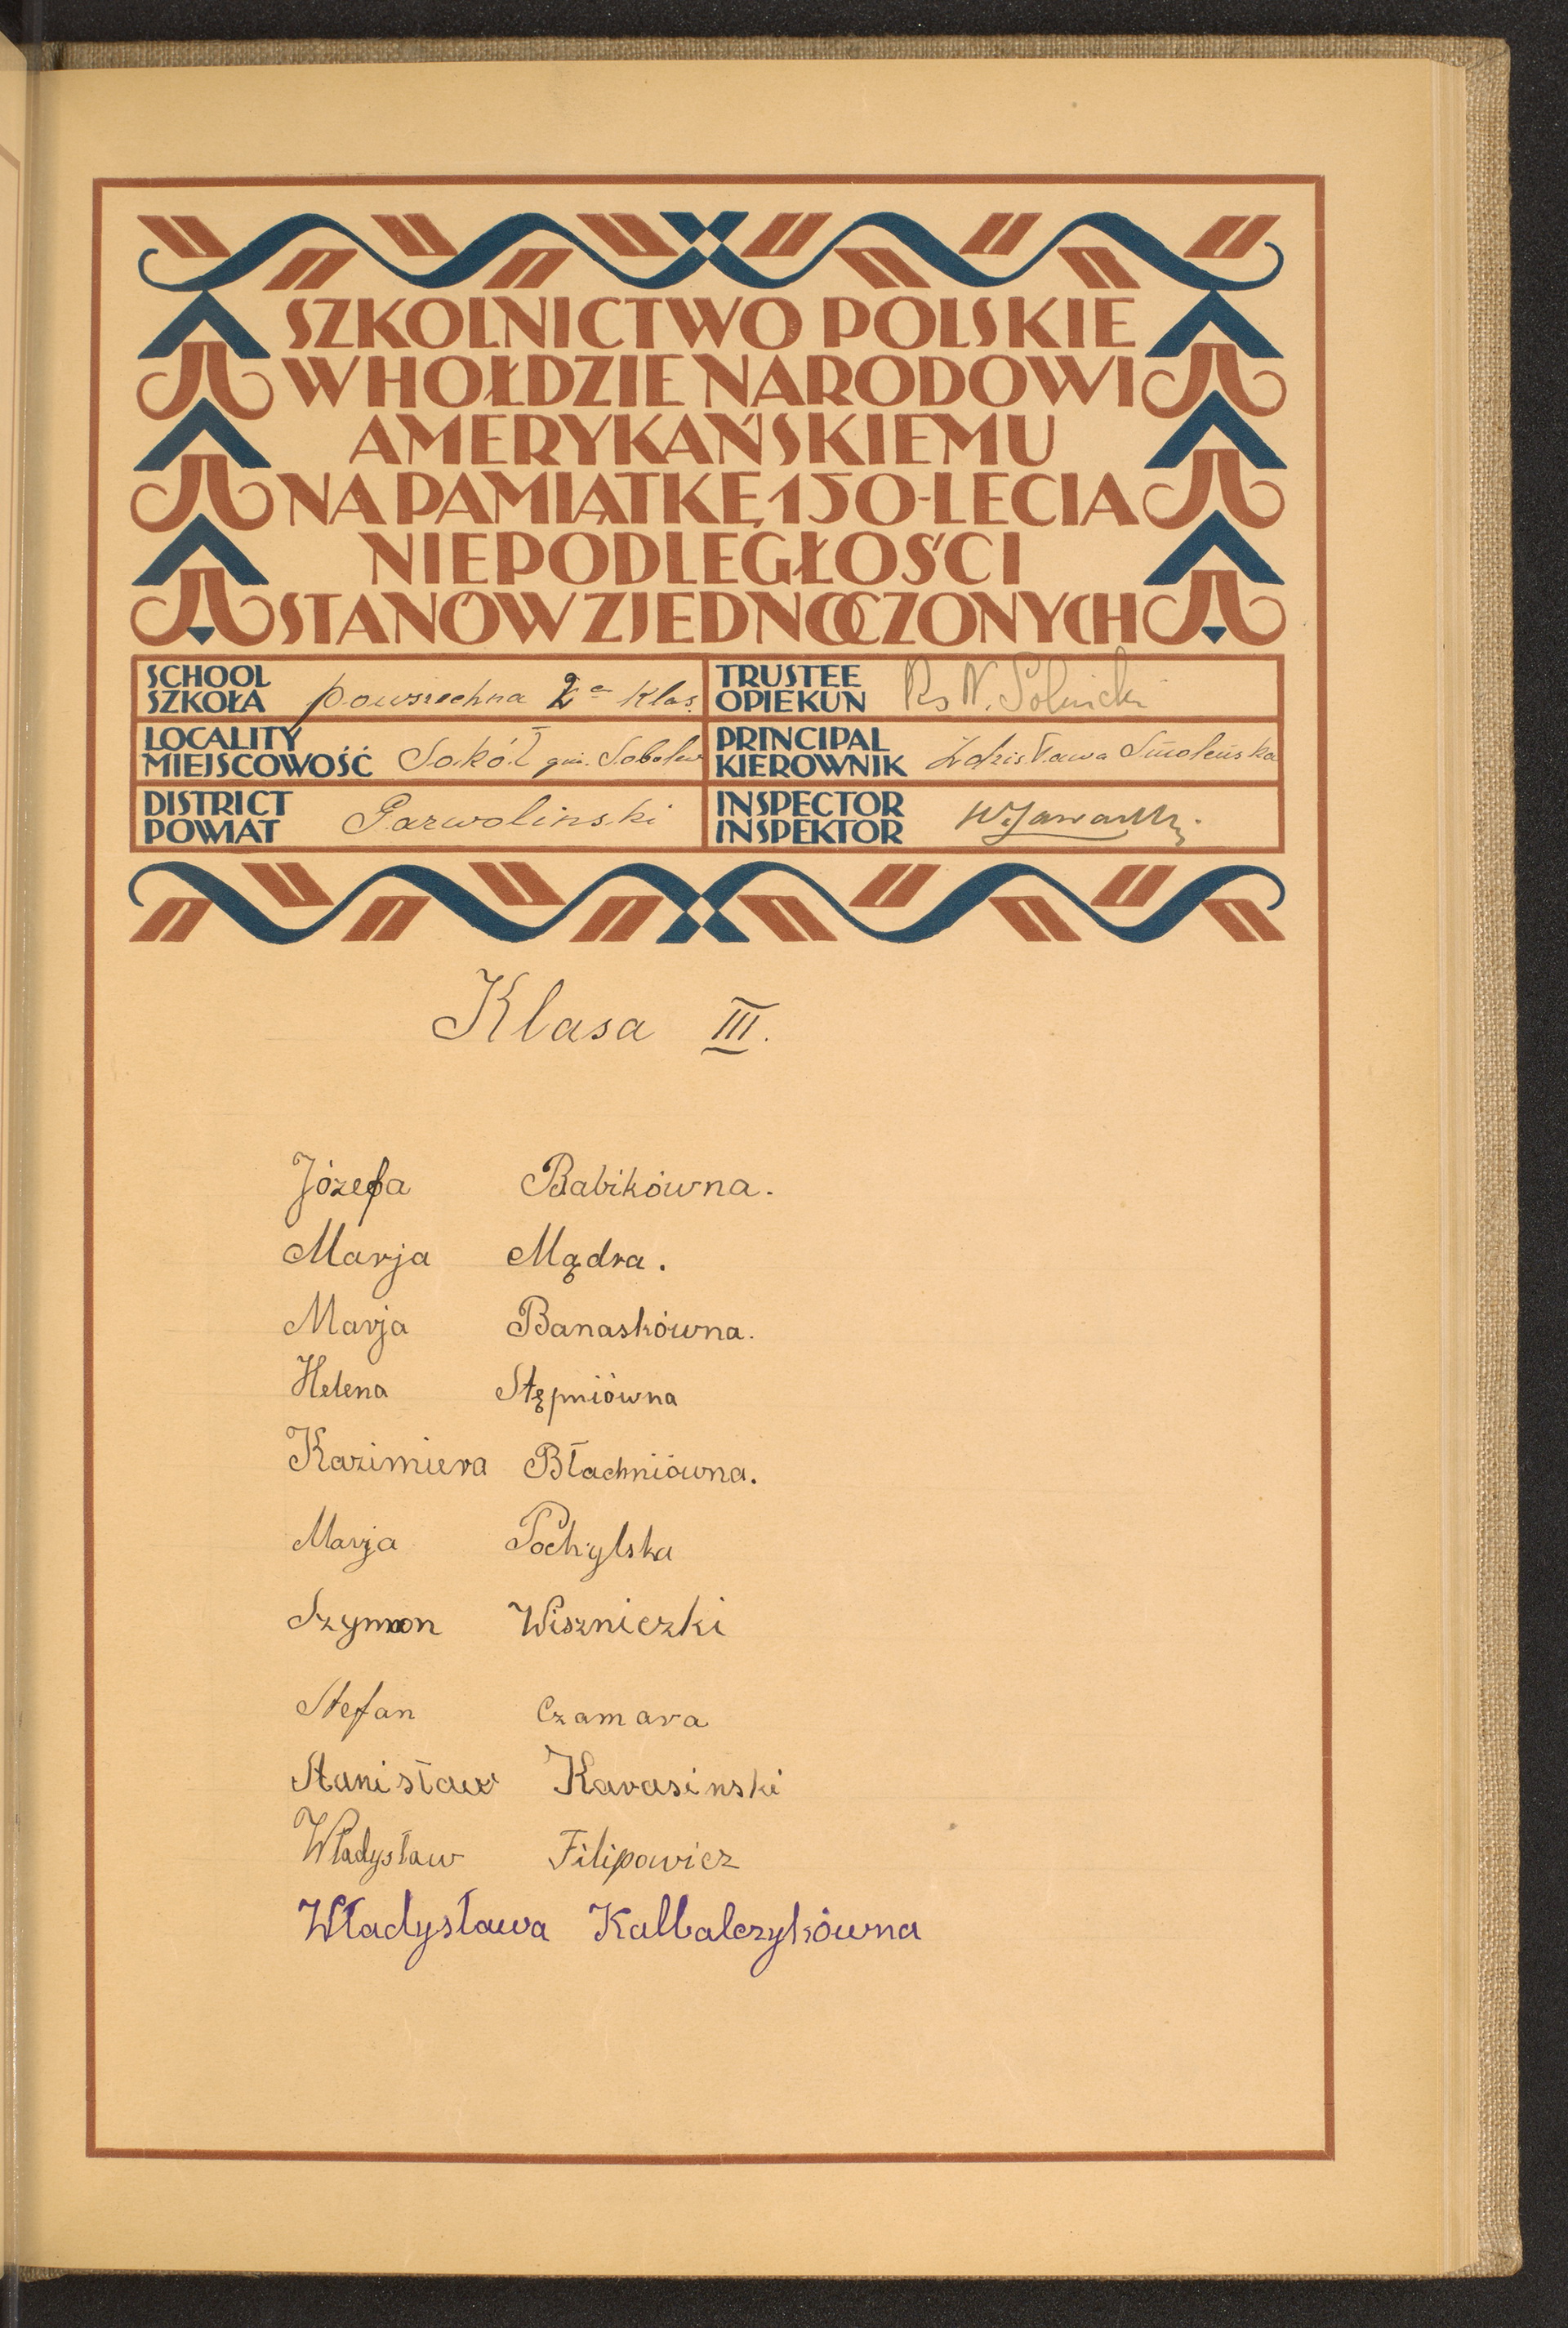 SZKOLNICTWO POLSKIE
W HOŁDZIE NARODOWI
AMERYKAŃSKIEMU
NA PAMIĄTKĘ 150-LECIA
NIEPODLEGŁOŚCI
STANÓW ZJEDNOCZONYCH
SCHOOL
SZKOŁA powszechna 2a klas.
TRUSTEE
OPIEKUN Ks N. Solnicki
LOCALITY
MIEJSCOWOŚĆ Sokół gm. Sobolew
PRINCIPAL
KIEROWNIK Zdzisława Smoleńska
DISTRICT
POWIAT Garwolinski
INSPECTOR
INSPEKTOR
Klasa III.
Józefa Babikówna.
Marja Mądra.
Marja Banaskówna.
Helena Stępniówna
Kazimiera Błachniówna.
Marja Pochylska
Szymon Wiszniczki
Stefan Czamara
Stanisław Karasinski
Władysław Filipowicz
Władysława Kalbalczykówna